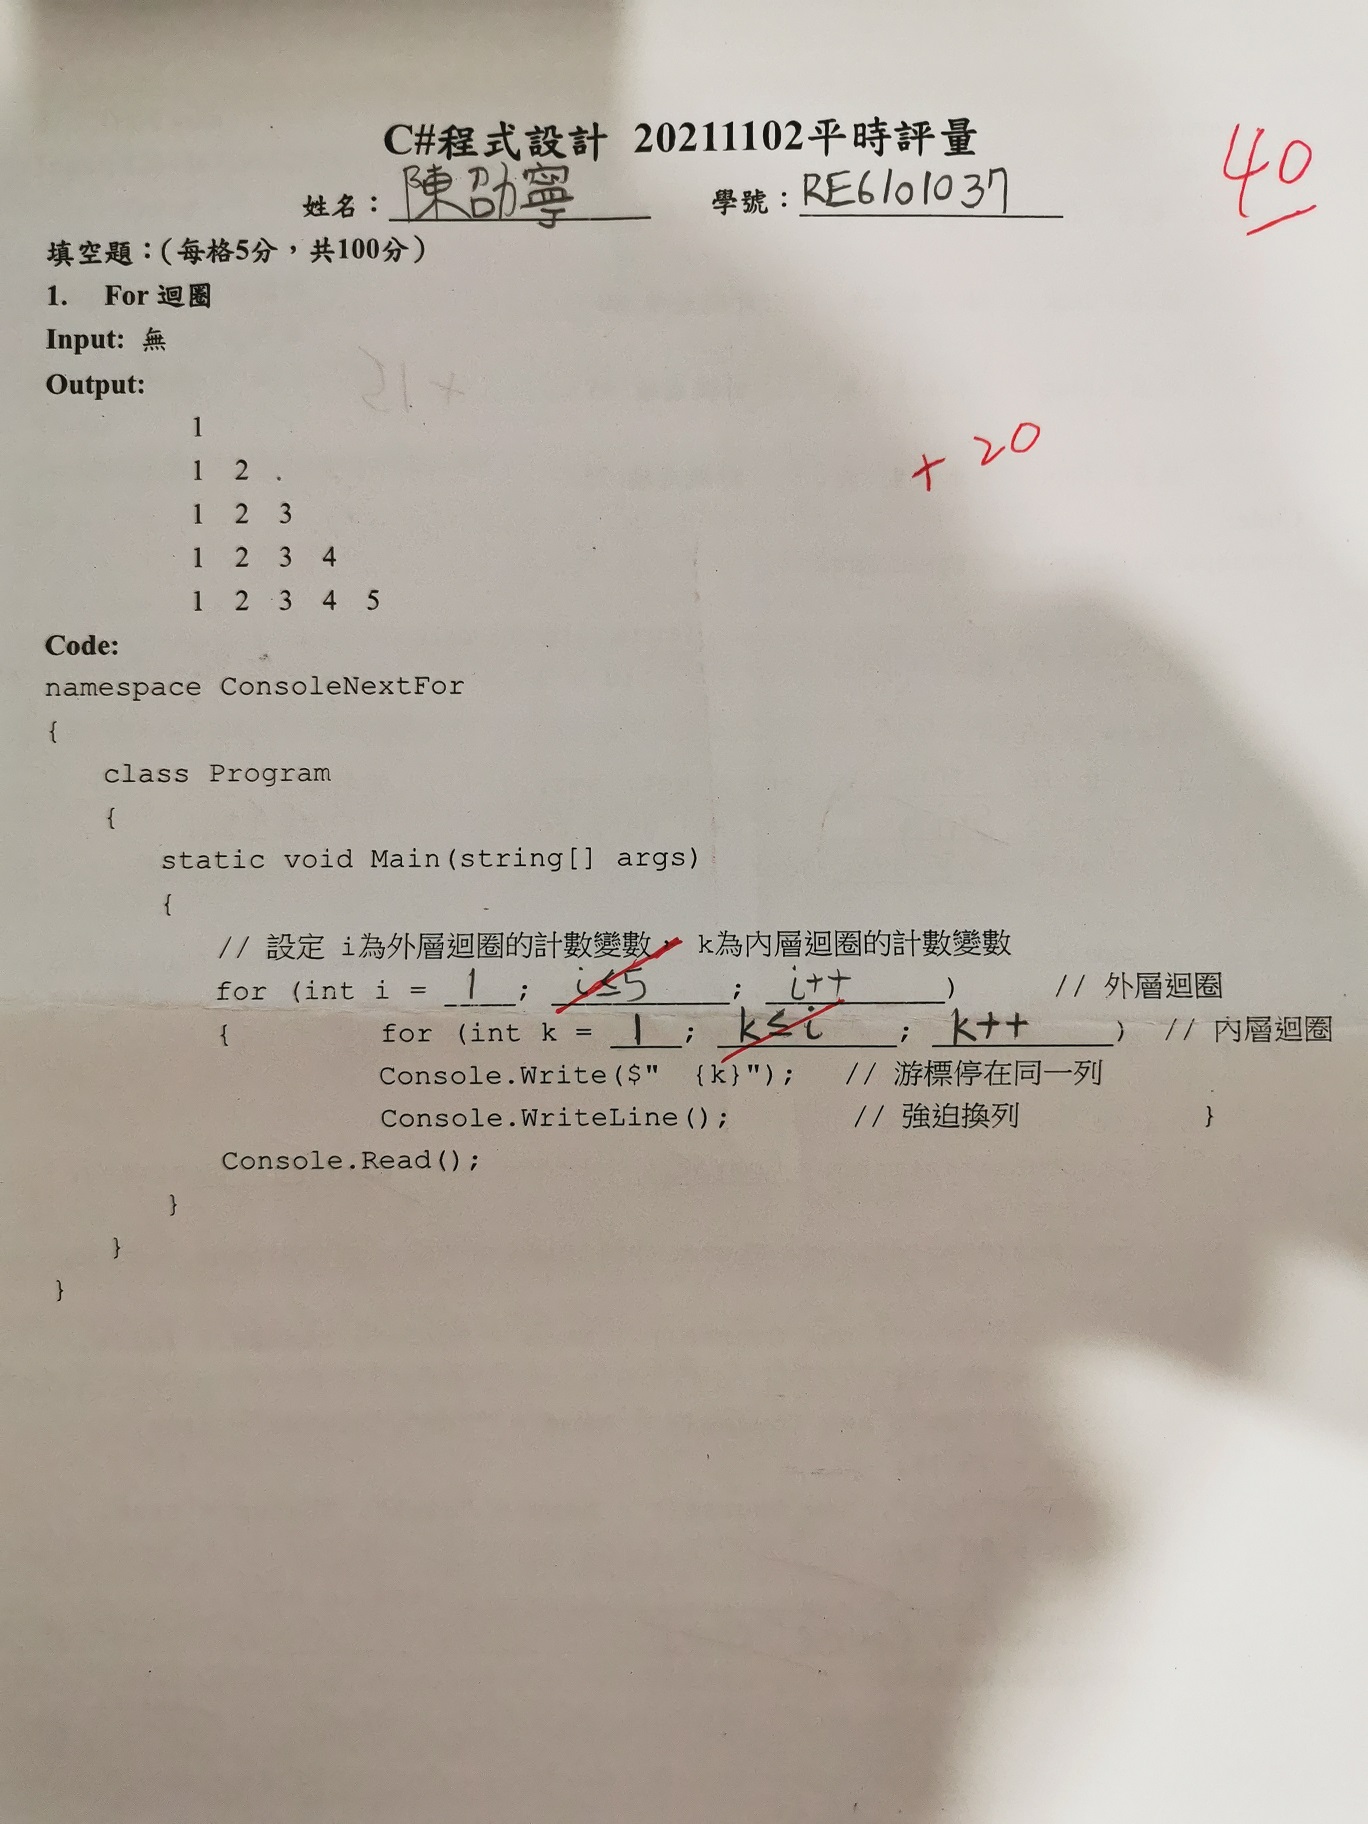 C#程式設計 20211102平時評量
40
姓名：陳劭寧 學號：RE6101037
填空題：(每格5分，共100分)
1. For 迴圈
Input: 無
Output:
+15
1
+ 20
1 2
1 2 3
1 2 3 4
1 2 3 4 5
Code:
namespace ConsoleNextFor
{
class Program
{
static void Main(string[] args)
{
// 設定 i為外層迴圈的計數變數， k為內層迴圈的計數變數
for (int i = 1; i≤5; i++) // 外層迴圈
{ for (int k = 1; k≤i; k++) // 內層迴圈
Console.Write($" {k}"); // 游標停在同一列
Console.WriteLine(); // 強迫換列 }
Console.Read();
}
}
}